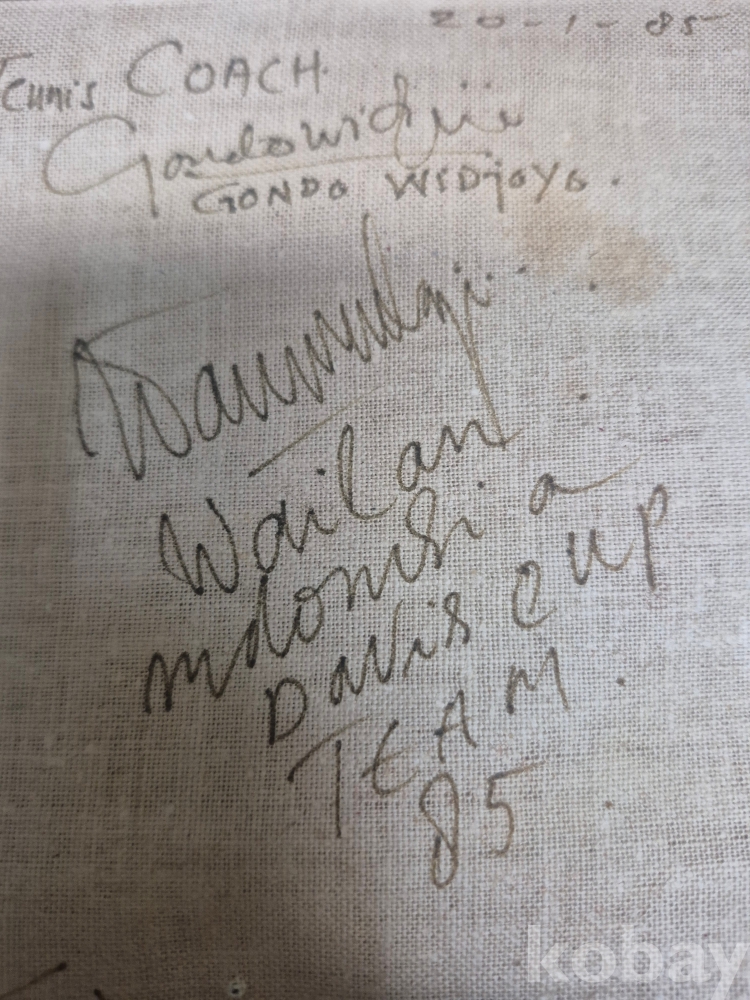 20-1-85
Tennis COACH
Gondowidjojo
GONDO WIDjOYO.
Wailan
indonesia
DAVis cUP
TEAM.
85
kobay